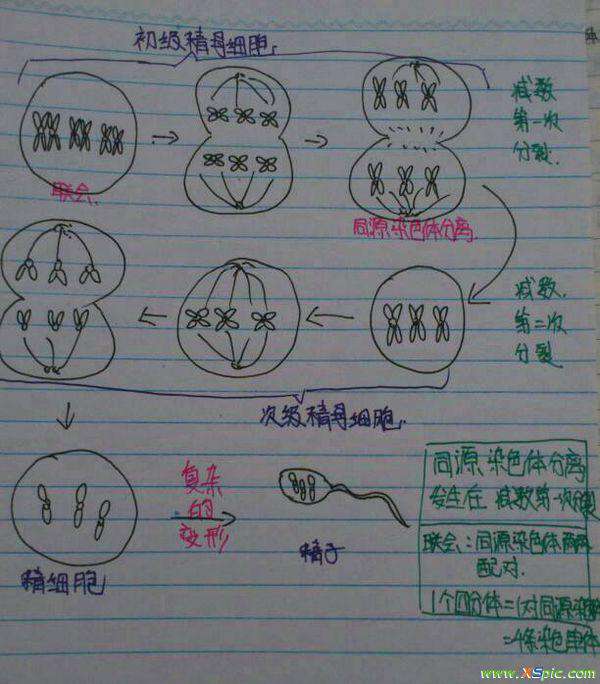 初级精母细胞
减数
第一次
分裂
联会
同源染色体分离
减数
第二次
分裂
次级精母细胞
复杂
的
变形
精细胞
精子
同源染色体分离
发生在减数第一次分裂
联会:同源染色体两两
配对.
1个四分体=1对同源染色体
=4条染色单体
www.XSpic.com